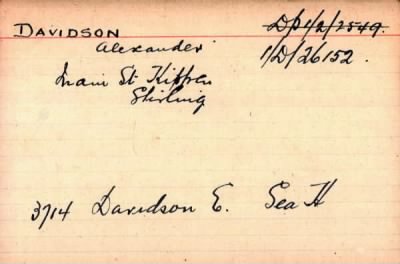 DAVIDSON D/P 1/2/2549.
Alexander 1/D/26152.
Main St Kippen
Stirling
3714 Davidson E. Sea H